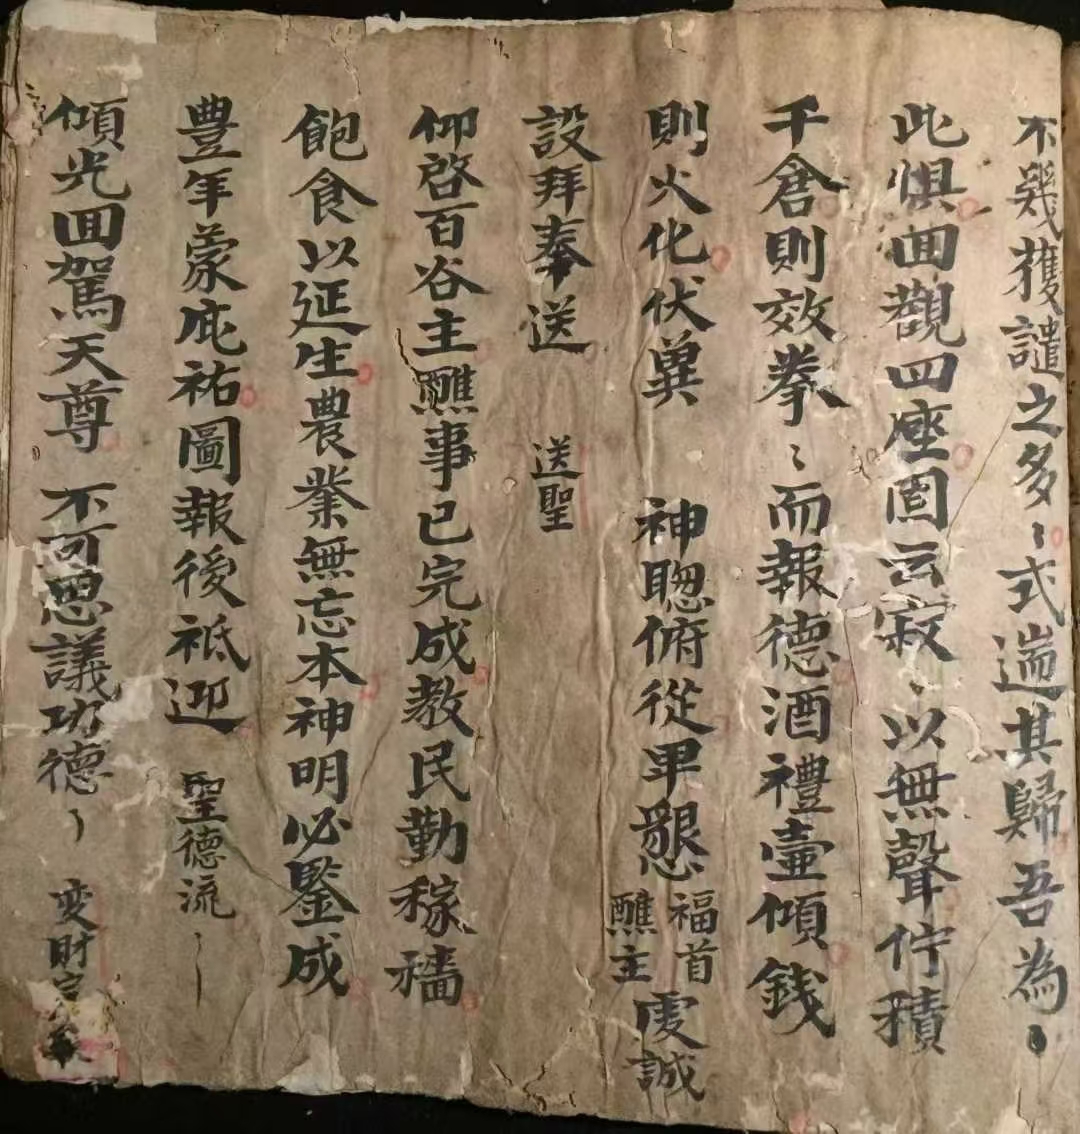 不幾獲譴之多〻式遄其歸吾為〻
此惧囬觀四座固云寂〻以無聲佇積
千倉則效拳〻而報德酒禮壷傾錢
則火化伏兾 神聦俯從卑懇 福首 醮主 虔誠
設拜奉送 送聖
仰启百谷主醮事已完成教民勤稼穡
飽食以延生農業無忘本神明必鑒成
豊年蒙庇祐圖報後祗迎 聖德流〻
傾光囬駕天尊 不可思議功德〻 变財